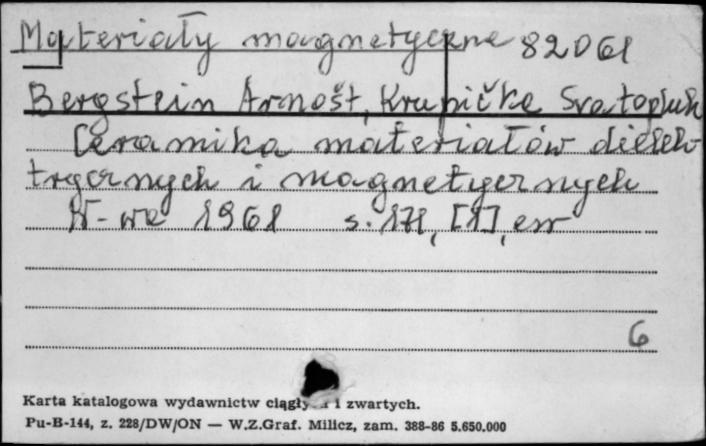 Materiały magnetyczne 82061
Bergstein Arnošt, Krupička Svatopluk
Ceramika materiałów dielek-
trycznych i magnetycznych
W-wa 1961 s. 171, [1], err
6
Karta katalogowa wydawnictw ciągły i zwartych.
Pu-B-144, z. 228/DW/ON — W.Z.Graf. Milicz, zam. 388-86 5.650.000